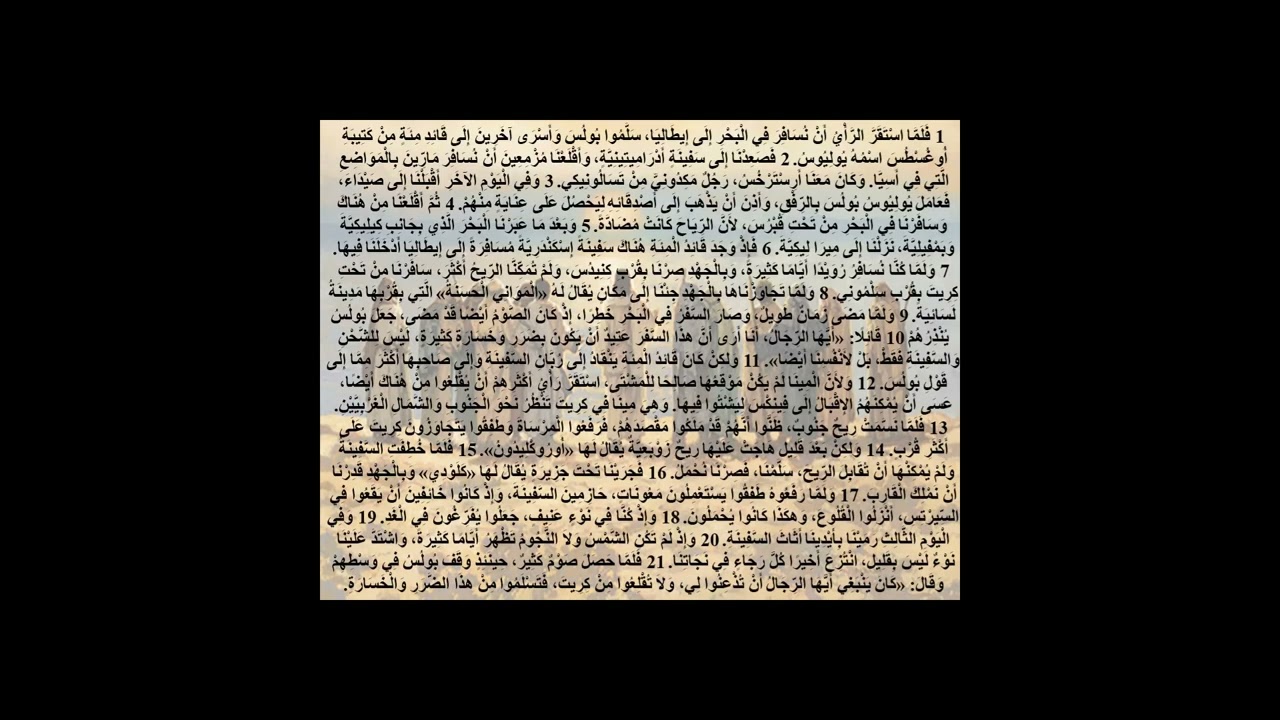 1 فَلَمَّا اسْتَقَرَّ الرَّأْيُ أَنْ نُسَافِرَ فِي الْبَحْرِ إِلَى إِيطَالِيَا، سَلَّمُوا بُولُسَ وَأَسْرَى آخَرِينَ إِلَى قَائِدِ مِئَةٍ مِنْ كَتِيبَةِ
أُوغُسْطُسَ اسْمُهُ يُولِيُوسُ. 2 فَصَعِدْنَا إِلَى سَفِينَةٍ أَدْرَامِيتِينِيَّةٍ، وَأَقْلَعْنَا مُزْمِعِينَ أَنْ نُسَافِرَ مَارِّينَ بِالْمَوَاضِعِ
الَّتِي فِي أَسِيَّا. وَكَانَ مَعَنَا أَرِسْتَرْخُسُ، رَجُلٌ مَكِدُونِيٌّ مِنْ تَسَالُونِيكِي. 3 وَفِي الْيَوْمِ الآخَرِ أَقْبَلْنَا إِلَى صَيْدَاءَ،
فَعَامَلَ يُولِيُوسُ بُولُسَ بِالرِّفْقِ، وَأَذِنَ أَنْ يَذْهَبَ إِلَى أَصْدِقَائِهِ لِيَحْصُلَ عَلَى عِنَايَةٍ مِنْهُمْ. 4 ثُمَّ أَقْلَعْنَا مِنْ هُنَاكَ
وَسَافَرْنَا فِي الْبَحْرِ مِنْ تَحْتِ قُبْرُسَ، لأَنَّ الرِّيَاحَ كَانَتْ مُضَادَّةً. 5 وَبَعْدَ مَا عَبَرْنَا الْبَحْرَ الَّذِي بِجَانِبِ كِيلِيكِيَّةَ
وَبَمْفِيلِيَّةَ، نَزَلْنَا إِلَى مِيرَا لِيكِيَّةَ. 6 فَإِذْ وَجَدَ قَائِدُ الْمِئَةِ هُنَاكَ سَفِينَةً إِسْكَنْدَرِيَّةً مُسَافِرَةً إِلَى إِيطَالِيَا أَدْخَلَنَا فِيهَا.
7 وَلَمَّا كُنَّا نُسَافِرُ رُوَيْدًا أَيَّامًا كَثِيرَةً، وَبِالْجَهْدِ صِرْنَا بِقُرْبِ كِنِيدُسَ، وَلَمْ تُمَكِّنَّا الرِّيحُ أَكْثَرَ، سَافَرْنَا مِنْ تَحْتِ
كِرِيتَ بِقُرْبِ سَلْمُونِي. 8 وَلَمَّا تَجَاوَزْنَاهَا بِالْجَهْدِ جِئْنَا إِلَى مَكَانٍ يُقَالُ لَهُ «الْمَوَانِي الْحَسَنَةُ» الَّتِي بِقُرْبِهَا مَدِينَةُ
لَسَائِيَةَ. 9 وَلَمَّا مَضَى زَمَانٌ طَوِيلٌ، وَصَارَ السَّفَرُ فِي الْبَحْرِ خَطِرًا، إِذْ كَانَ الصَّوْمُ أَيْضًا قَدْ مَضَى، جَعَلَ بُولُسُ
يُنْذِرُهُمْ 10 قَائِلاً: «أَيُّهَا الرِّجَالُ، أَنَا أَرَى أَنَّ هذَا السَّفَرَ عَتِيدٌ أَنْ يَكُونَ بِضَرَرٍ وَخَسَارَةٍ كَثِيرَةٍ، لَيْسَ لِلشَّحْنِ
وَالسَّفِينَةِ فَقَطْ، بَلْ لأَنْفُسِنَا أَيْضًا». 11 وَلكِنْ كَانَ قَائِدُ الْمِئَةِ يَنْقَادُ إِلَى رُبَّانِ السَّفِينَةِ وَإِلَى صَاحِبِهَا أَكْثَرَ مِمَّا إِلَى
قَوْلِ بُولُسَ. 12 وَلأَنَّ الْمِينَا لَمْ يَكُنْ مَوْقِعُهَا صَالِحًا لِلْمَشْتَى، اسْتَقَرَّ رَأْيُ أَكْثَرِهِمْ أَنْ يُقْلِعُوا مِنْ هُنَاكَ أَيْضًا،
عَسَى أَنْ يُمْكِنَهُمُ الإِقْبَالُ إِلَى فِينِكْسَ لِيَشْتُوا فِيهَا. وَهِيَ مِينَا فِي كِرِيتَ تَنْظُرُ نَحْوَ الْجَنُوبِ وَالشَّمَالِ الْغَرْبِيَّيْنِ.
13 فَلَمَّا نَسَّمَتْ رِيحٌ جَنُوبٌ، ظَنُّوا أَنَّهُمْ قَدْ مَلَكُوا مَقْصَدَهُمْ، فَرَفَعُوا الْمِرْسَاةَ وَطَفِقُوا يَتَجَاوَزُونَ كِرِيتَ عَلَى
أَكْثَرِ قُرْبٍ. 14 وَلكِنْ بَعْدَ قَلِيل هَاجَتْ عَلَيْهَا رِيحٌ زَوْبَعِيَّةٌ يُقَالُ لَهَا «أُورُوكْلِيدُونُ». 15 فَلَمَّا خُطِفَتِ السَّفِينَةُ
وَلَمْ يُمْكِنْهَا أَنْ تُقَابِلَ الرِّيحَ، سَلَّمْنَا، فَصِرْنَا نُحْمَلُ. 16 فَجَرَيْنَا تَحْتَ جَزِيرَةٍ يُقَالُ لَهَا «كَلَوْدِي» وَبِالْجَهْدِ قَدِرْنَا
أَنْ نَمْلِكَ الْقَارِبَ. 17 وَلَمَّا رَفَعُوهُ طَفِقُوا يَسْتَعْمِلُونَ مَعُونَاتٍ، حَازِمِينَ السَّفِينَةَ، وَإِذْ كَانُوا خَائِفِينَ أَنْ يَقَعُوا فِي
السِّيرْتِسِ، أَنْزَلُوا الْقُلُوعَ، وَهكَذَا كَانُوا يُحْمَلُونَ. 18 وَإِذْ كُنَّا فِي نَوْءٍ عَنِيفٍ، جَعَلُوا يُفَرِّغُونَ فِي الْغَدِ. 19 وَفِي
الْيَوْمِ الثَّالِثِ رَمَيْنَا بِأَيْدِينَا أَثَاثَ السَّفِينَةِ. 20 وَإِذْ لَمْ تَكُنِ الشَّمْسُ وَلاَ النُّجُومُ تَظْهَرُ أَيَّامًا كَثِيرَةً، وَاشْتَدَّ عَلَيْنَا
نَوْءٌ لَيْسَ بِقَلِيل، انْتُزِعَ أَخِيرًا كُلُّ رَجَاءٍ فِي نَجَاتِنَا. 21 فَلَمَّا حَصَلَ صَوْمٌ كَثِيرٌ، حِينَئِذٍ وَقَفَ بُولُسُ فِي وَسْطِهِمْ
وَقَالَ: «كَانَ يَنْبَغِي أَيُّهَا الرِّجَالُ أَنْ تُذْعِنُوا لِي، وَلاَ تُقْلِعُوا مِنْ كِرِيتَ، فَتَسْلَمُوا مِنْ هذَا الضَّرَرِ وَالْخَسَارَةِ.